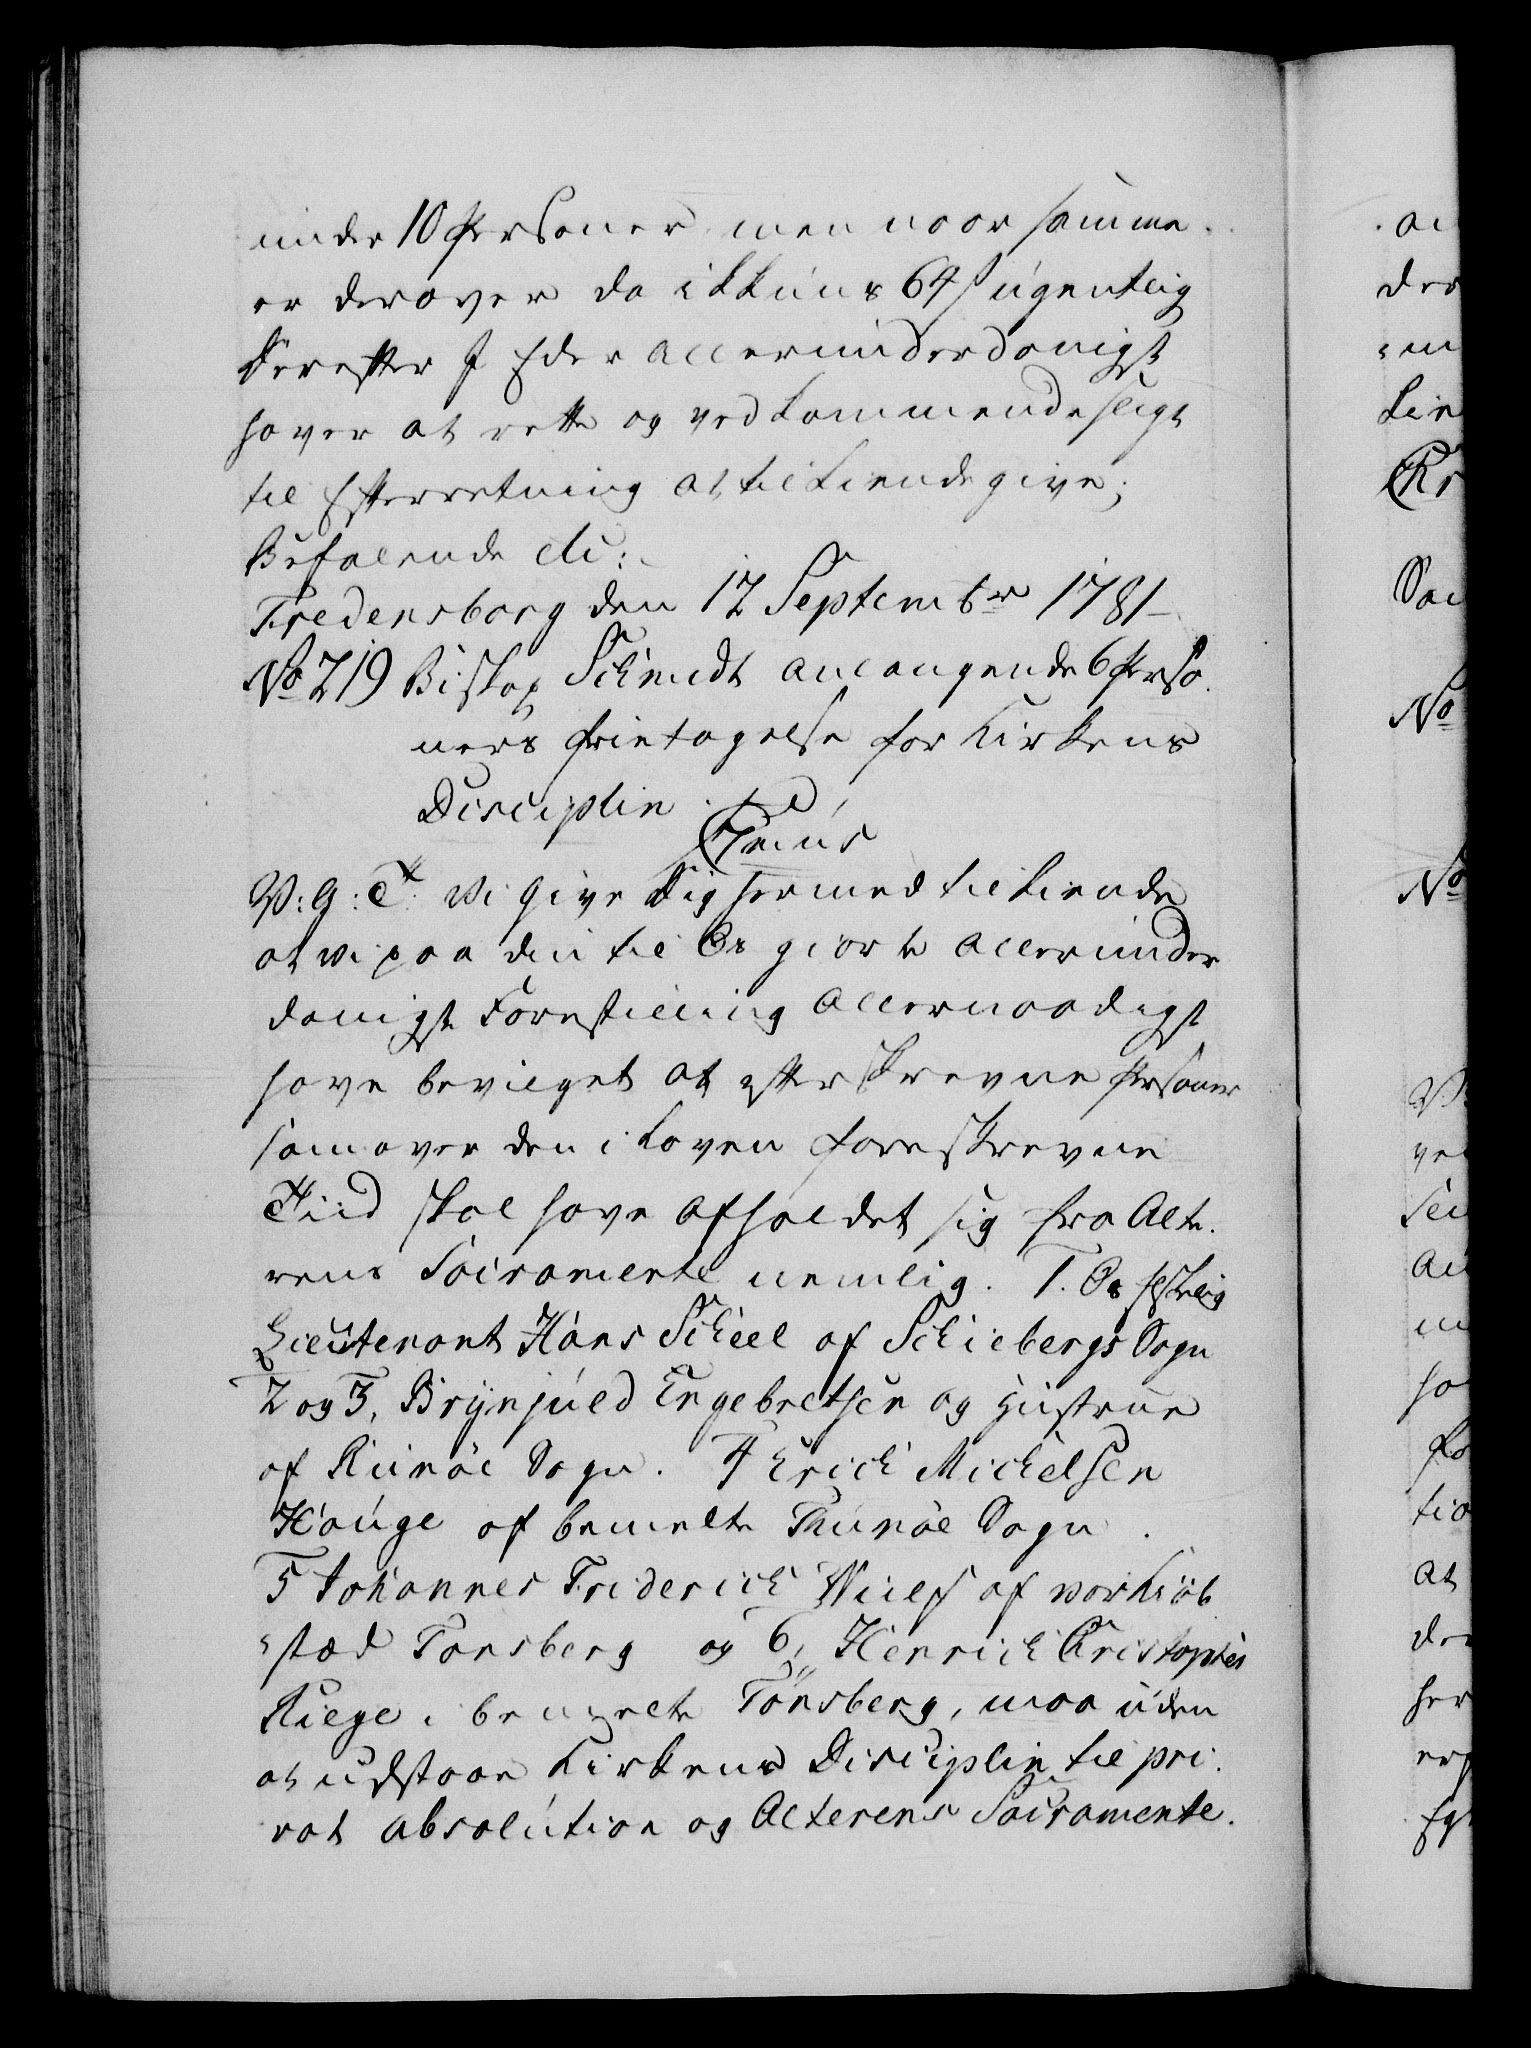 under 10 Personer men naar samme
er derover da ikkuns 64 s ugentlig
Derefter I Eder allerunderdanigst
haver at rette og vedkommende sligt
til Efterretning at tilkiendegive;
Befalende etc:
Fredensborg den 12 Septembr 1781
No 219 Biskop Schmidt anlangende 6 Perso
ners Frietagelse for Kirkens
Disciplin.
V: G: T: Vi give Dig hermed tilkiende
at vi paa din til Os giorte allerunder
danigste Forestilling allernaadigst
have bevilget at efterskrevne Personer
som over den i Loven foreskrevne
Tiid skal have afholdet sig fra Alte
rens Sacramente nemlig. 1. Os elskelig
Lieutenant Hans Scheel af Schiebergs Sogn
2 og 3, Brynjuld Engebretsen og Hustrue
af Sogn. 4 Erich Michelsen
Houge af bemelte Sogn.
5 Johannes Friderich af vor Kiøb
stæd Tonsberg og 6, Henrich Christopher
i bemelte Tönsberg, maa uden
at udstaae Kirkens Disciplin til pri
vat absolution og Alterens Sacramente.